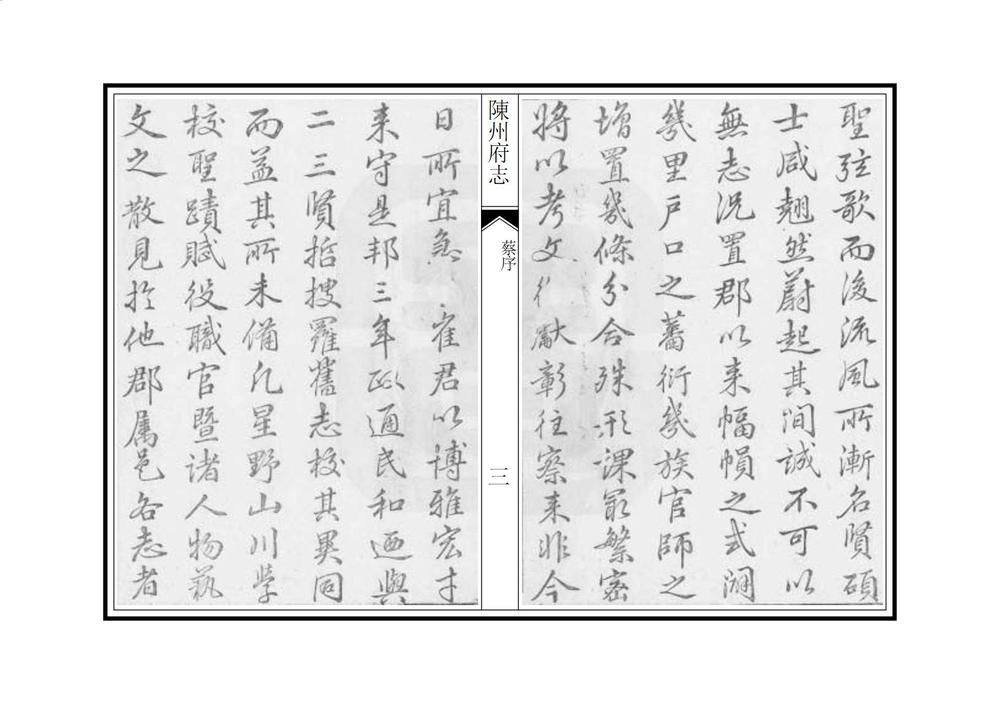 聖弦歌而後流風所漸名賢碩
士咸翹然蔚起其間誠不可以
無志況置郡以來幅㡓之式濶
幾里戸口之蕃衍幾族官師之
増置幾條分合殊形課冣繁宻
將以考文獻彰往察来非今
陳州府志
蔡序
三
日所宜急崔君以博雅宏才
来守是邦三年政通民和廼與
二三賢哲搜羅舊志校其異同
而益其所未備凡星野山川學
校聖蹟賦役職官暨諸人物藝
文之散見扵他郡属邑各志者